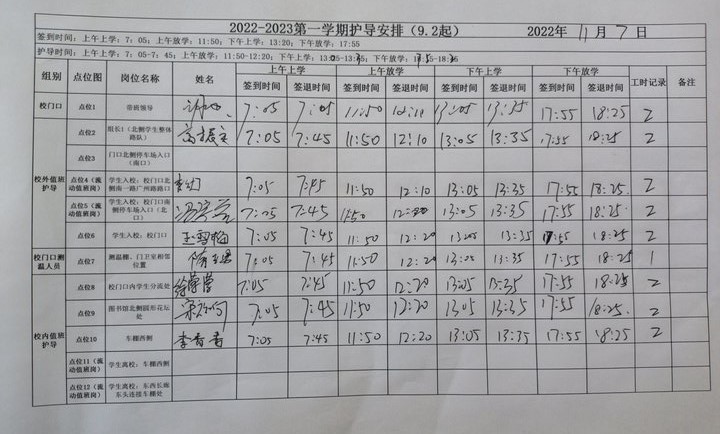 2022-2023第一学期护导安排（9.2起） 2022年 11 月 7 日
签到时间：上午上学：7：05；上午放学：11:50；下午上学：13:20；下午放学：17:55
护导时间：上午上学：7:05-7：45；上午放学：11:50-12:20；下午上学：
组别 点位图 岗位名称 姓名 上午上学 上午放学 下午上学 下午放学 工时记录 备注
签到时间 签退时间 签到时间 签退时间 签到时间 签退时间 签到时间 签退时间
校门口 点位1 带班领导 7:05 11:50 13:05 13:35 17:55 18:25 2
校外值班护导 点位2 组长1（北侧学生整体路队） 7:05 7:45 11:50 12:10 13:05 13:35 17:55 18:25 2
点位3 门口北侧停车场入口（南口）
点位4（流动值班岗） 学生入校：校门口北侧南一路广州路路口 7:05 7:45 11:50 12:10 13:05 13:35 17:55 18:25 2
点位5（流动值班岗） 学生入校：校门口南侧停车场入口（北口） 7:05 7:45 11:50 13:05 13:35 17:55 18:25 2
点位6 学生入校：校门口 7:05 7:45 11:50 12:20 13:05 13:35 17:55 18:25 2
校门口测温人员 点位7 测温棚、门卫室相邻位置 7:05 7:45 11:50 12:20 13:05 13:35 17:55 18:25 1
校内值班护导 点位8 校门口内学生分流处 徐荣荣 7:05 7:45 11:50 12:20 13:05 13:35 17:55 18:25 2
点位9 图书馆北侧圆形花坛处 7:05 7:45 11:50 12:20 13:05 13:35 17:55 18:25 2
点位10 车棚西侧 李香香 7:05 7:45 11:50 12:20 13:05 13:35 17:55 18:25 2
点位11（流动值班岗） 学生离校：车棚西侧
点位12（流动值班岗） 学生离校：东西长廊东头连接车棚处